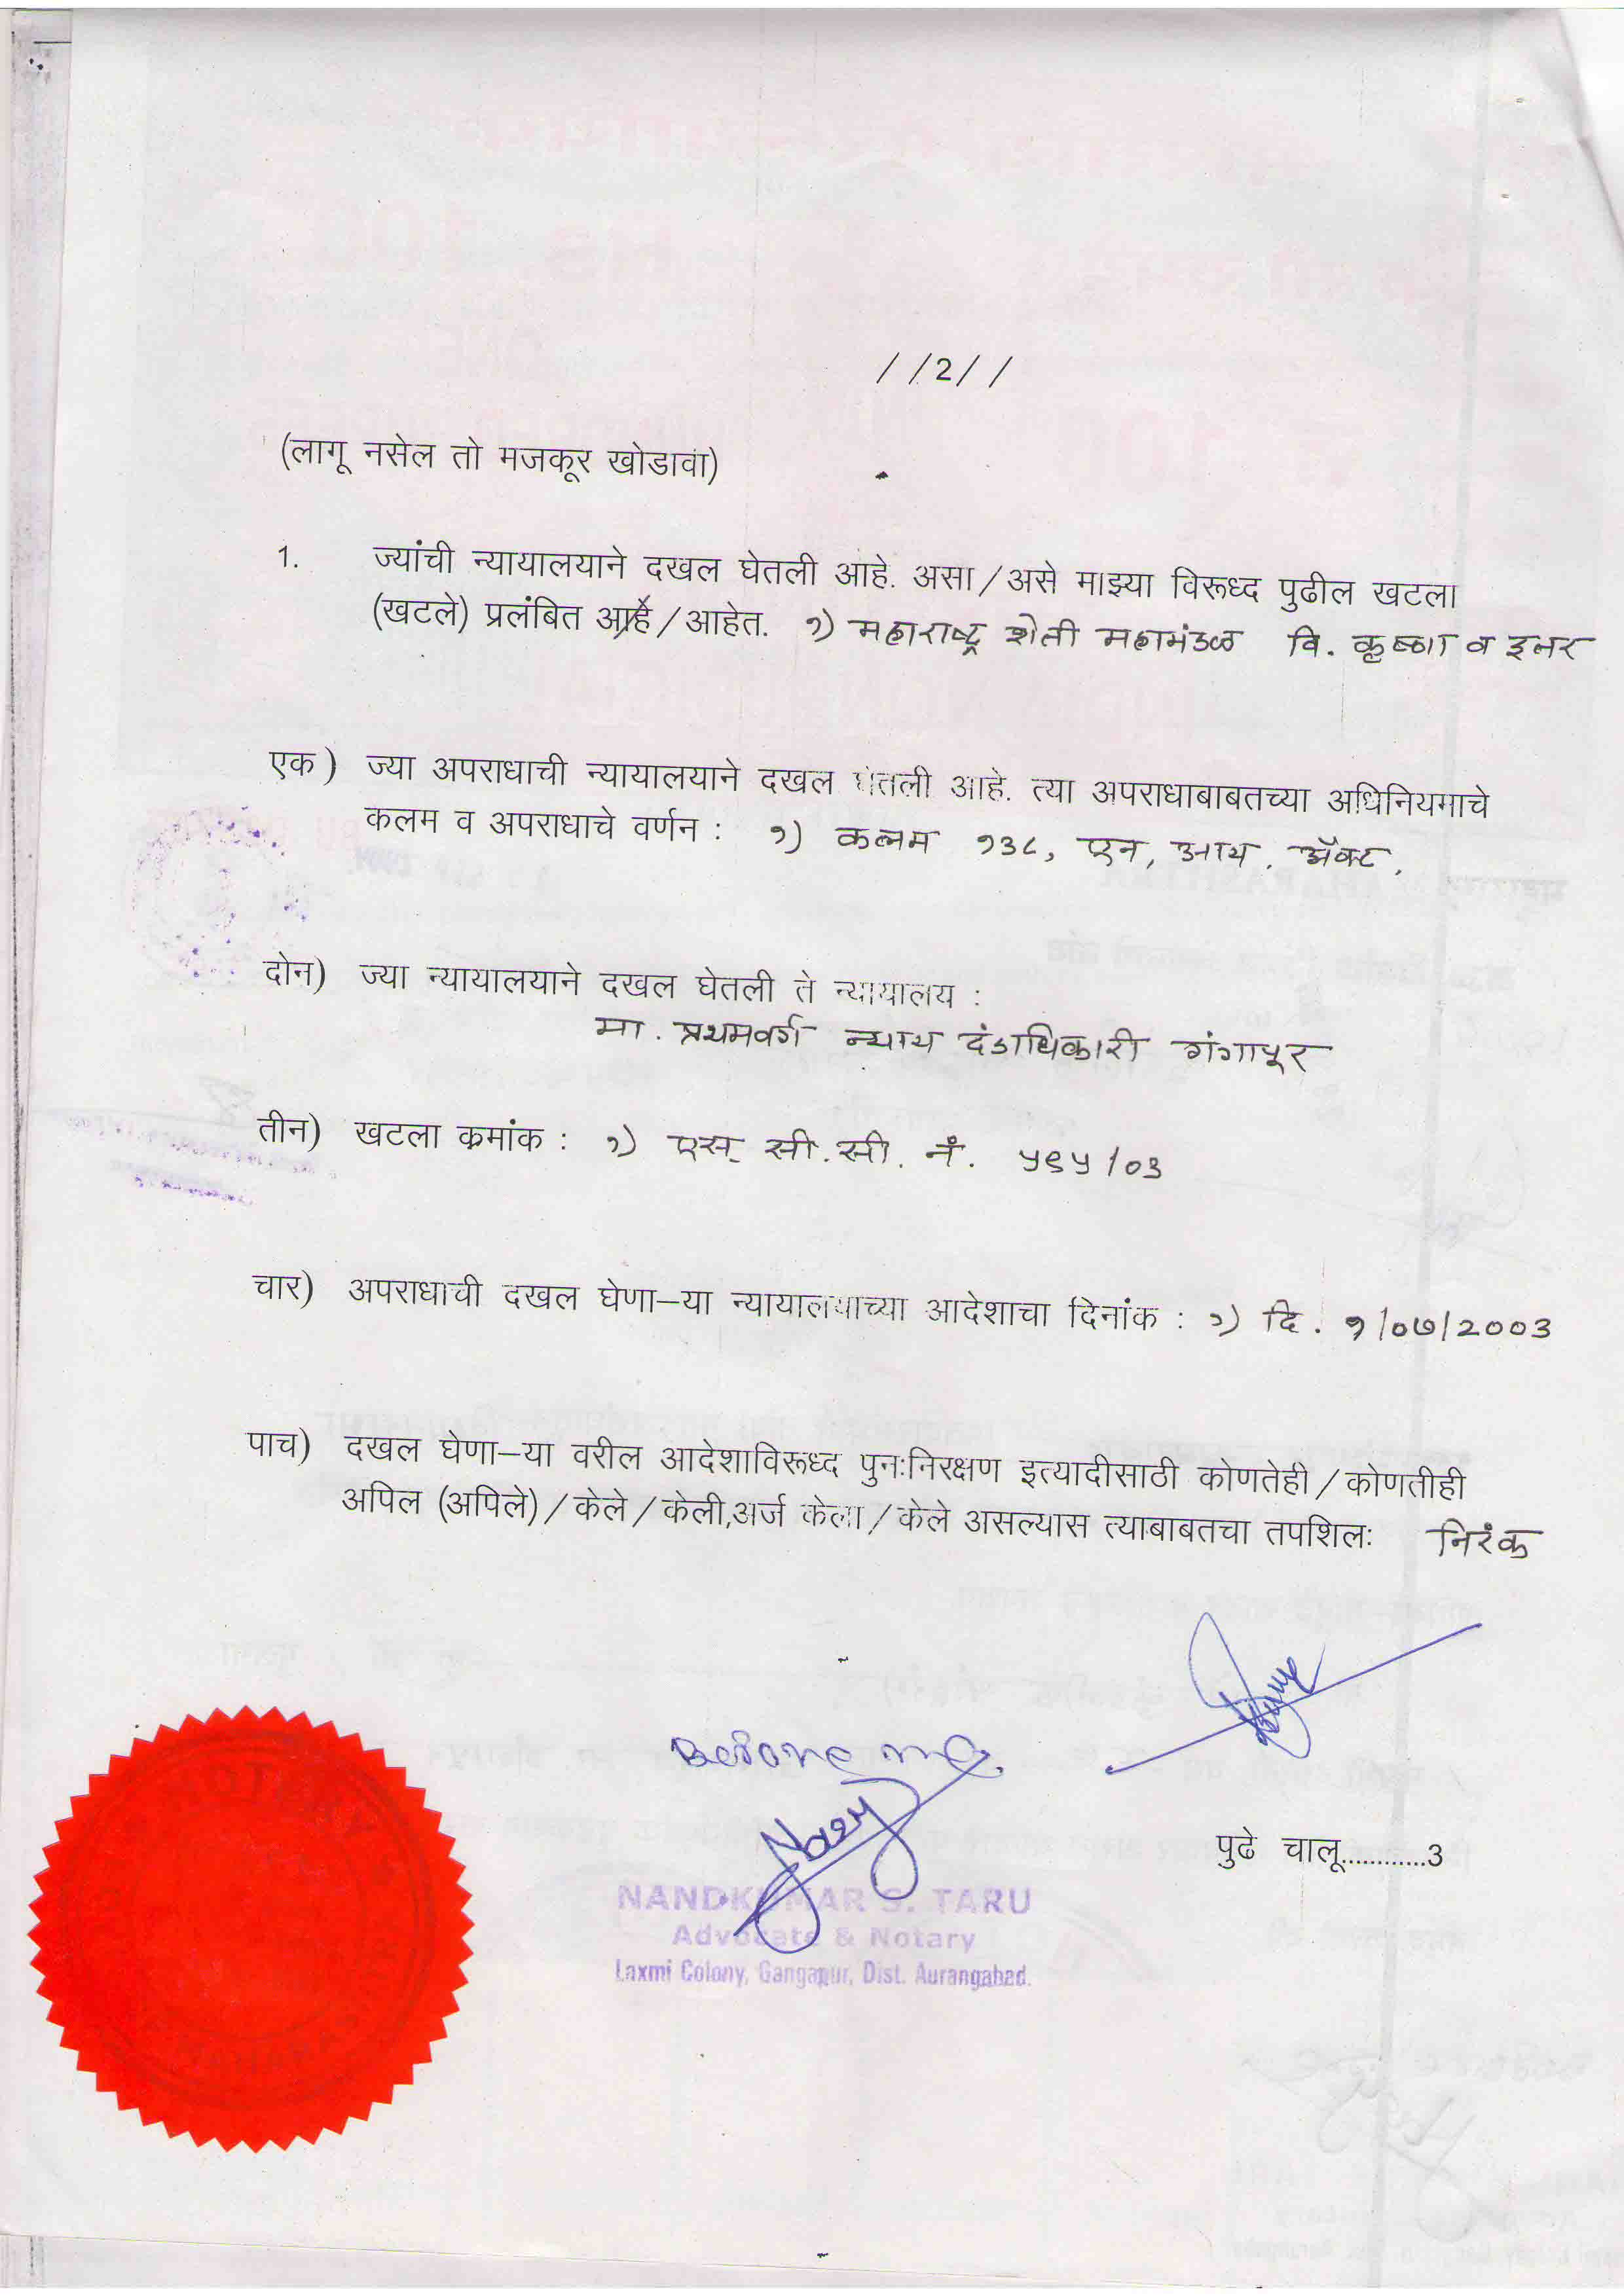 //2//
(लागू नसेल तो मजकूर खोडावा)
1. ज्यांची न्यायालयाने दखल घेतली आहे. असा/असे माझ्या विरूध्द पुढील खटला
(खटले) प्रलंबित आहे/आहेत. १) महाराष्ट्र शेती महामंडळ वि. कृष्णा व इतर
एक) ज्या अपराधाची न्यायालयाने दखल घेतली आहे. त्या अपराधाबाबतच्या अधिनियमाचे
कलम व अपराधाचे वर्णन : १) कलम १३८, एन, आय. ॲक्ट.
दोन) ज्या न्यायालयाने दखल घेतली ते न्यायालय :
मा. प्रथमवर्ग न्याय दंडाधिकारी गंगापूर
तीन) खटला क्रमांक : १) एस. सी. सी. नं. ५९५/०३
चार) अपराधाची दखल घेणा-या न्यायालयाच्या आदेशाचा दिनांक : १) दि. १/०७/२००३
पाच) दखल घेणा-या वरील आदेशाविरूध्द पुनःनिरक्षण इत्यादीसाठी कोणतेही/कोणतीही
अपिल (अपिले)/केले/केली,अर्ज केला/केले असल्यास त्याबाबतचा तपशिलः निरंक
Before me
पुढे चालू............3
NANDKUMAR S. TARU
Advocate & Notary
Laxmi Colony, Gangapur, Dist. Aurangabad.